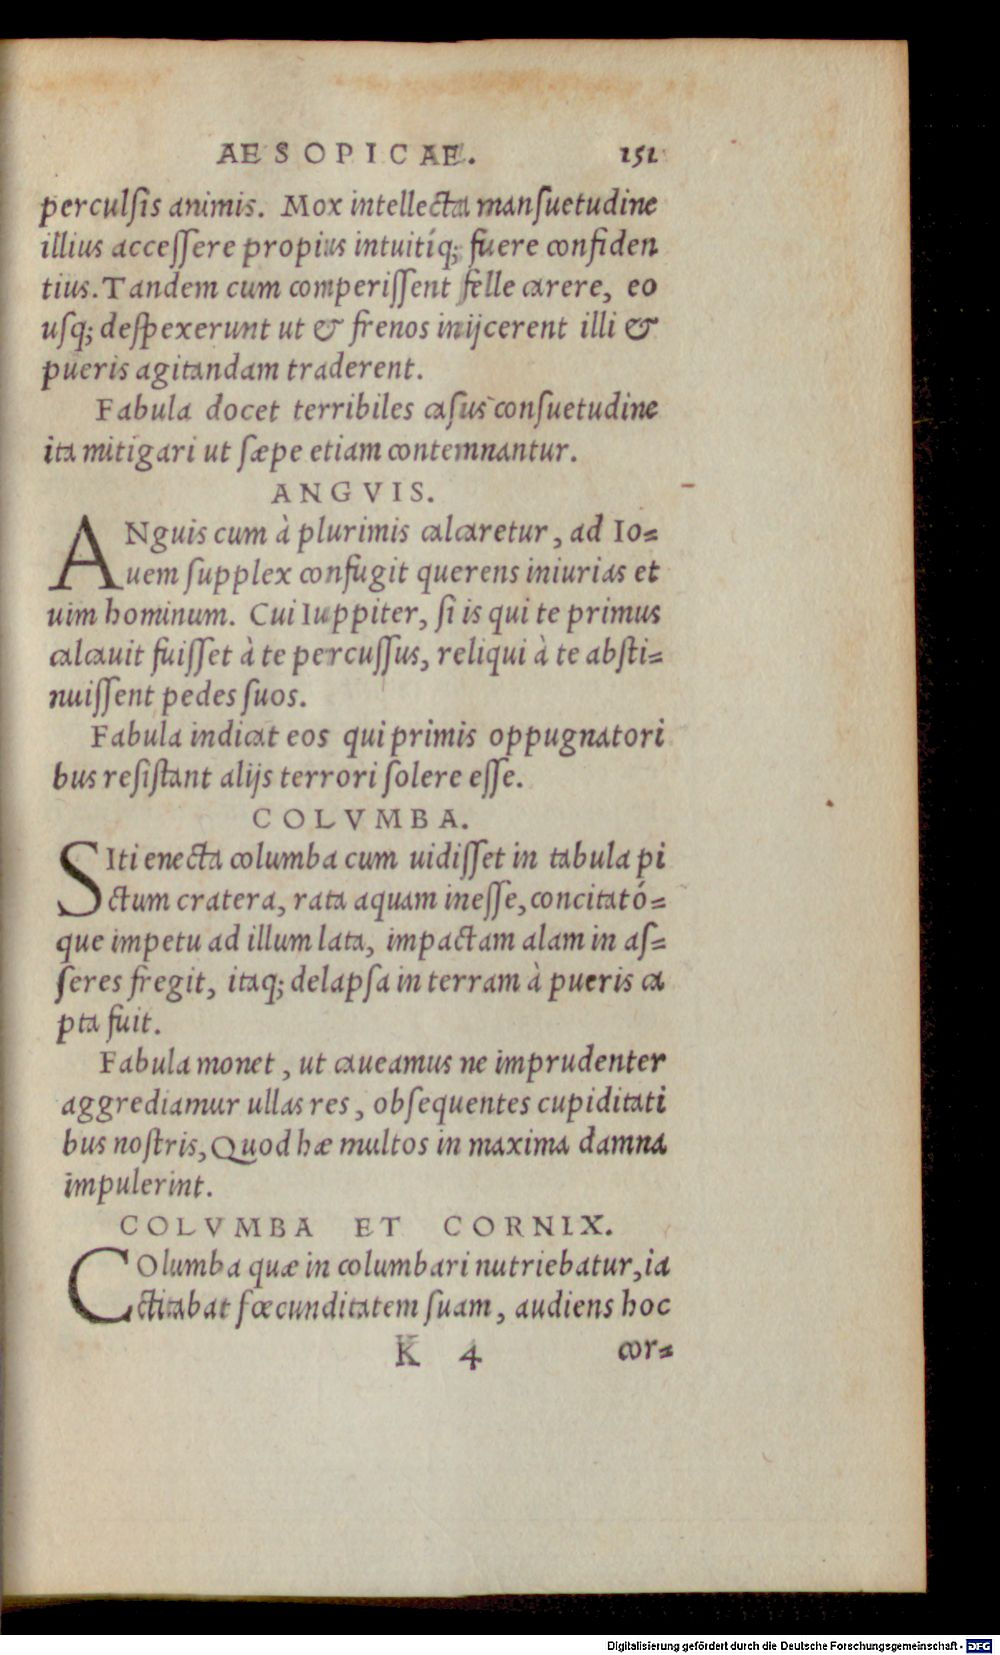 AESOPICAE. 151
perculſis animis. Mox intellecta manſuetudine
illius acceſſere propius intuitíq; fuere confiden
tius. Tandem cum comperiſſent felle carere, eo
uſq; deſpexerunt ut & frenos inijcerent illi &
pueris agitandam traderent.
Fabula docet terribiles caſus conſuetudine
ita mitigari ut ſæpe etiam contemnantur.
ANGVIS.
ANguis cum à plurimis calcaretur, ad Io=
uem ſupplex confugit querens iniurias et
uim hominum. Cui Iuppiter, ſi is qui te primus
calcauit fuiſſet à te percuſſus, reliqui à te abſti=
nuiſſent pedes ſuos.
Fabula indicat eos qui primis oppugnatori
bus reſiſtant alijs terrori ſolere eſſe.
COLVMBA.
SIti enecta columba cum uidiſſet in tabula pi
ctum cratera, rata aquam ineſſe, concitató=
que impetu ad illum lata, impactam alam in aſ=
ſeres fregit, itaq; delapſa in terram à pueris ca
pta fuit.
Fabula monet, ut caueamus ne imprudenter
aggrediamur ullas res, obſequentes cupiditati
bus noſtris, Quod hæ multos in maxima damna
impulerint.
COLVMBA ET CORNIX.
COlumba quæ in columbari nutriebatur, ia
ctitabat fœcunditatem ſuam, audiens hoc
K 4 cor=
Digitalisierung gefördert durch die Deutsche Forschungsgemeinschaft - DFG